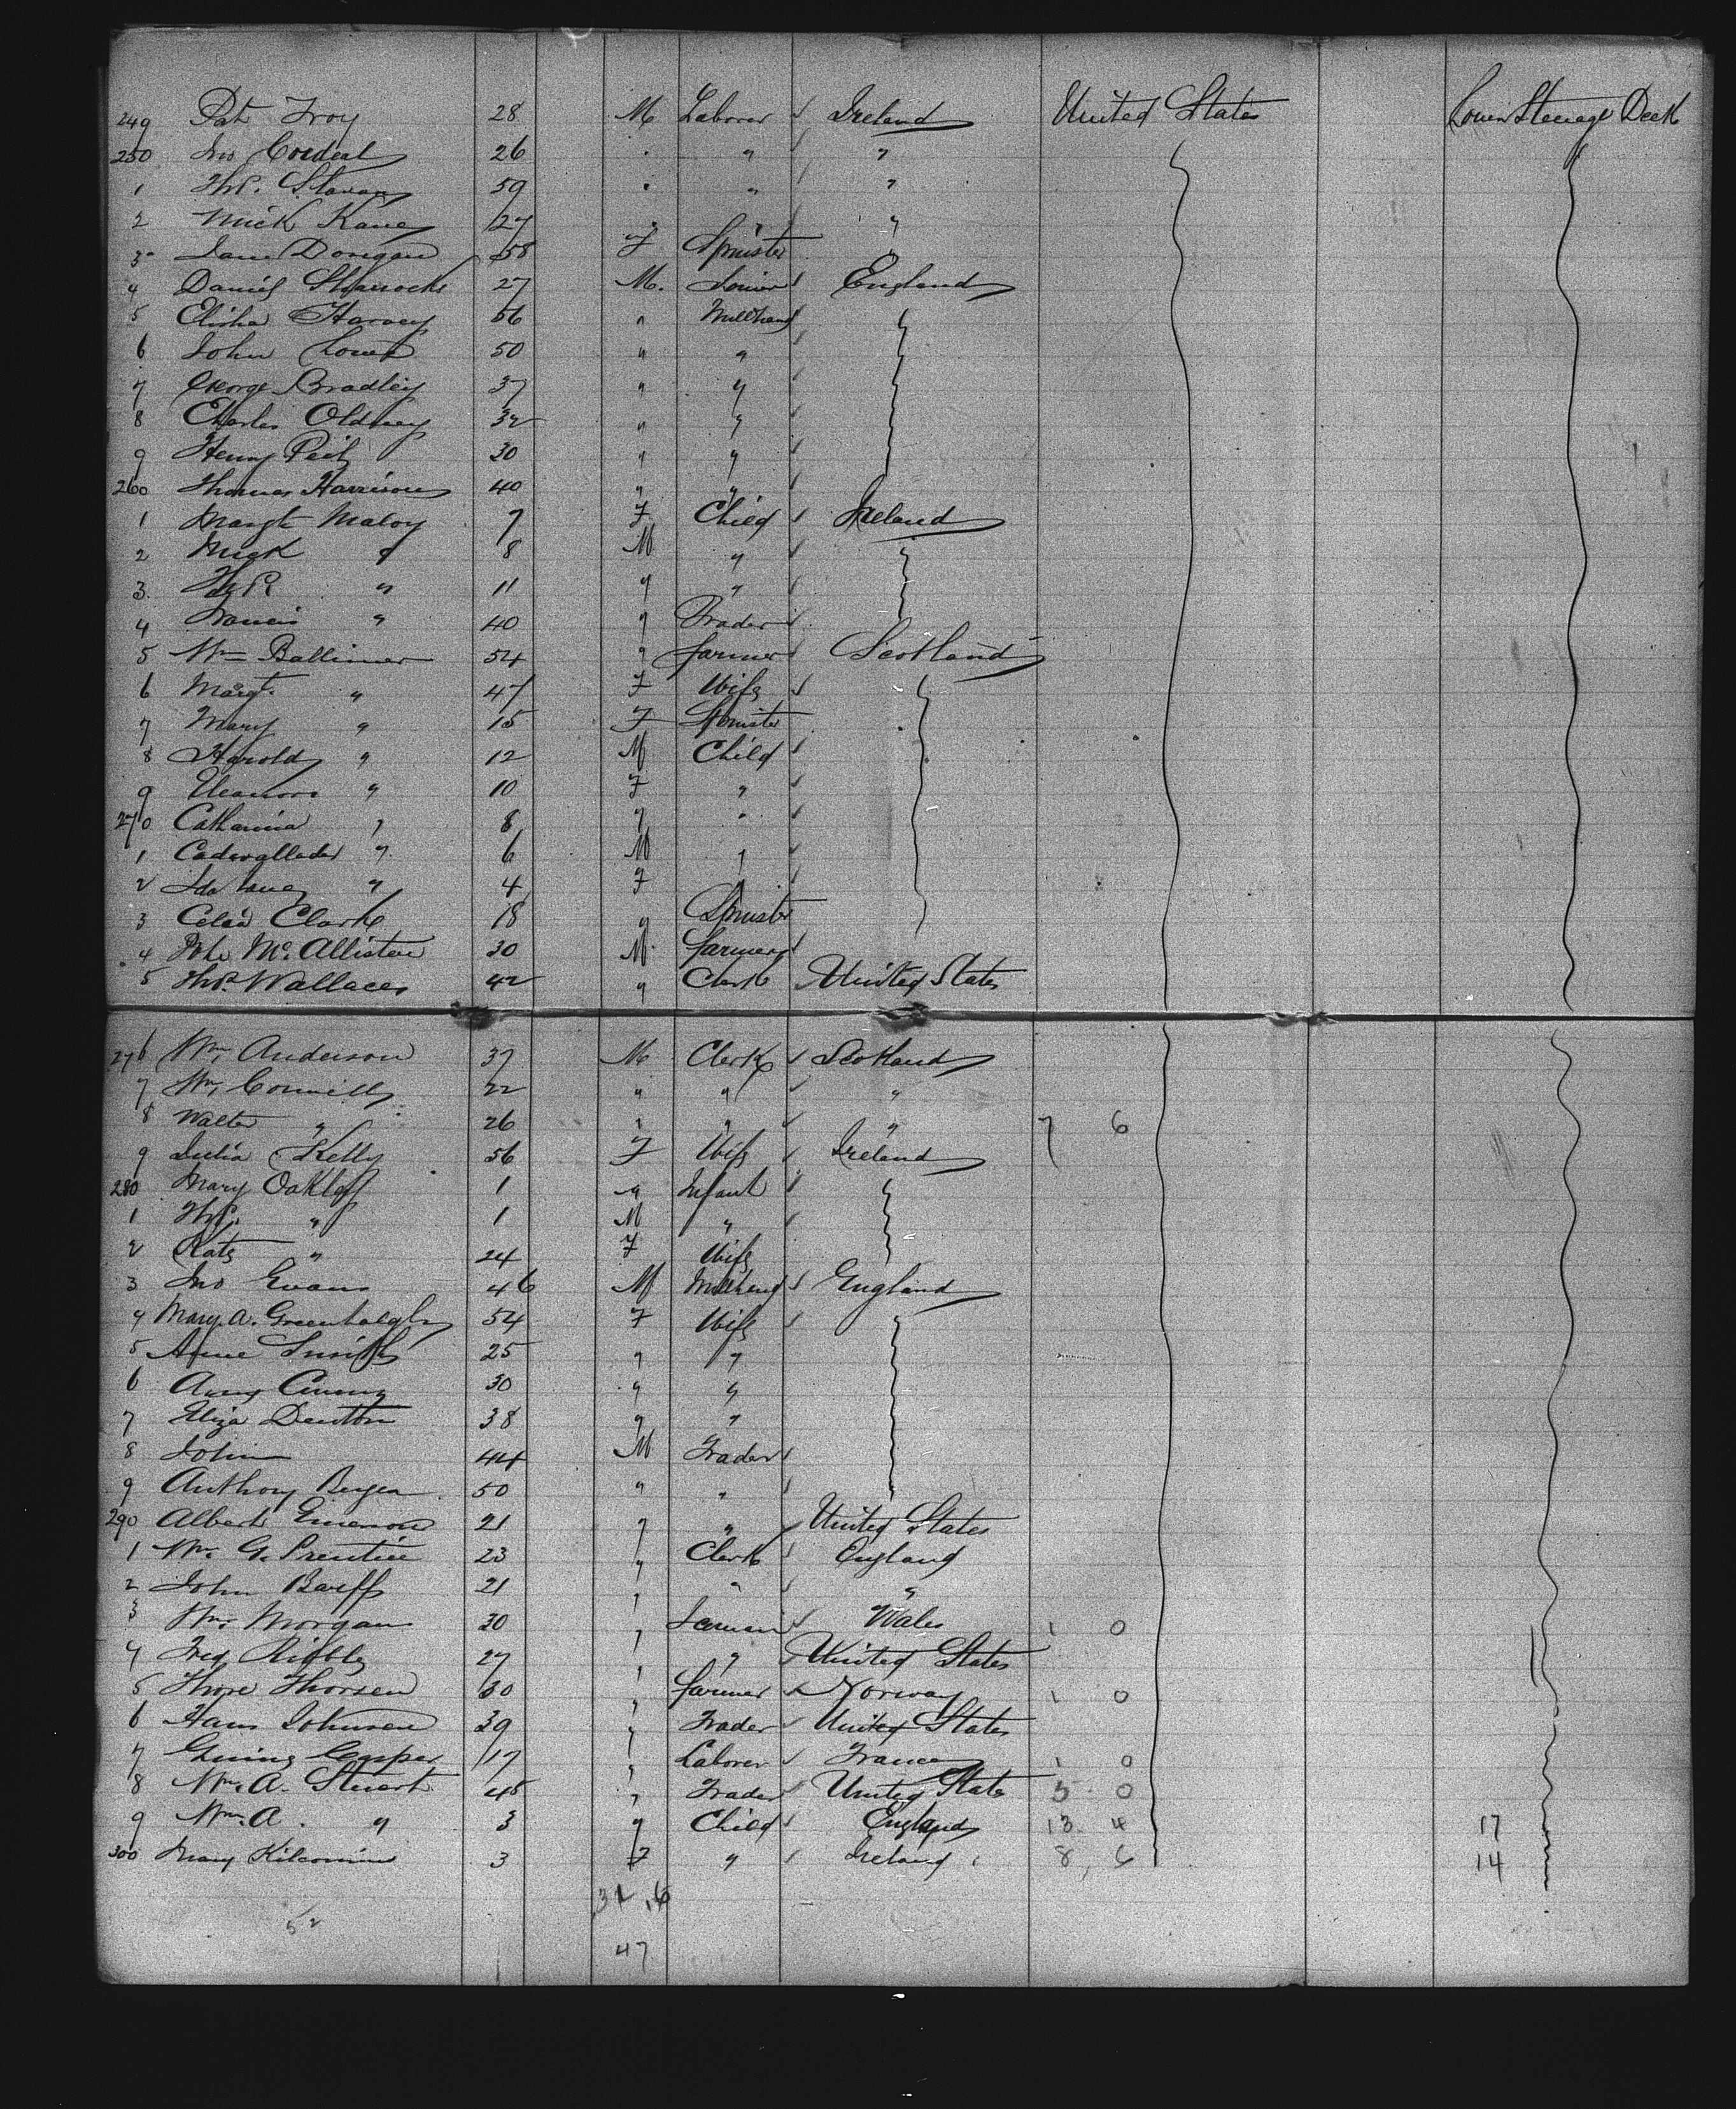 249 Pat Troy 28 M Laborer Ireland United States Lower Steerage Deck
250 Jno Cordeal 26 " " "
1 Thos. Slavan 59 " " "
2 Mick Kane 27 " " "
3 Jane Donegan 58 F Spinster
4 Daniel Sharrocks 27 M. Joiner England
5 Elisha Harvey 56 " Millhand
6 John Lowe 50 " "
7 George Bradley 37 " "
8 Charles Oldney 32 " "
9 Henry 30 " "
260 Thomas Harrison 40 " "
1 Margt Maloy 7 F Child Ireland
2 Mick " 8 M "
3 Thos " 11 " "
4 Francis " 40 " Trader
5 Wm Ballimer 54 " farmer Scotland
6 Margt. " 47 F Wife
7 Mary " 15 F Spinster
8 Harold " 12 M Child
9 Eleanora " 10 F "
270 Catharina " 8 " "
1 Cadwallader " 6 M "
2 Ida " 4 F "
3 Celia Clark 18 " Spinster
4 McAllister 30 M farmer
5 Thos. Wallace 42 " Clerk United States
276 Wm. Anderson 37 M Clerk Scotland
7 Wm. Connill 22 " " "
8 Walter " 26 " " " 7 6
9 Julia Kelly 56 F Wife Ireland
280 Mary 1 " Infant
1 Thos. " 1 M "
2 Kate " 24 F Wife
3 Jno Evans 46 M Millhand England
4 Mary A. Greenhalgh 54 F Wife
5 Anne Smith 25 " "
6 Amy 30 " "
7 Eliza Denton 38 " "
8 John 44 M Trader
9 Anthony 50 " "
290 Albert Emerson 21 " " United States
1 Wm. G. Prentice 23 " Clerk England
2 John Barff 21 " " "
3 Wm. Morgan 30 " Seaman Wales 1 0
4 Fred Rigbly 27 " " United States
5 Thore Thorsen 30 " farmer Norway 1 0
6 Hans Johnsen 39 " Trader United States
7 Casper 17 " Laborer France 1 0
8 Wm. A. Stewart 45 " Trader United States 5 0
9 Wm. A. " 3 " Child England 13 4 17
300 Mary Kilcommins 3 F " Ireland 8 6 14
31 16
52
47